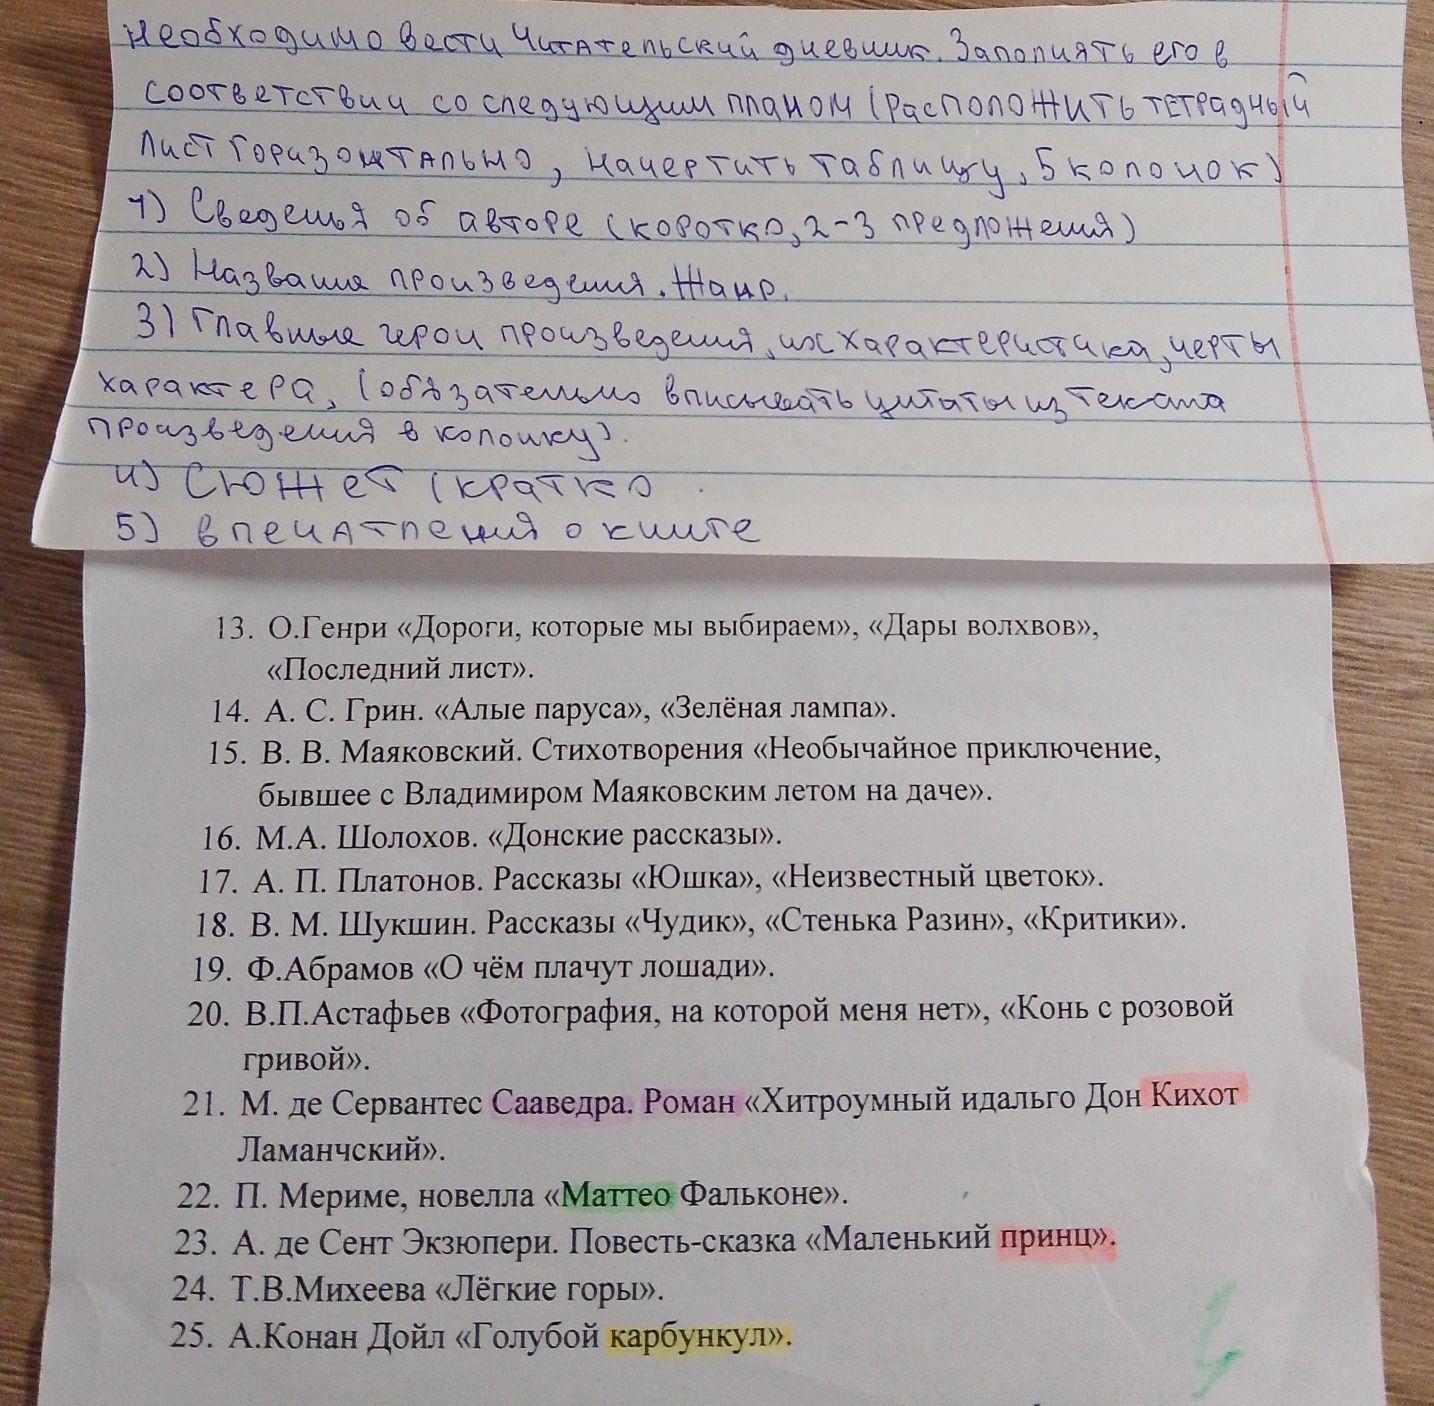 необходимо вести читательский дневник. Заполнять его в
соответствии со следующим планом (расположить тетрадный
лист горизонтально, начертить таблицу, 5 колонок)
1) Сведенья об авторе (коротко, 2-3 предложения)
2) Название произведения. Жанр.
3) Главные герои произведения, их характеристика, черты
характера, (обязательно вписывать цитаты из текста
произведения в колонку).
4) Сюжет (кратко
5) впечатления о книге
13. О.Генри «Дороги, которые мы выбираем», «Дары волхвов»,
«Последний лист».
14. А. С. Грин. «Алые паруса», «Зелёная лампа».
15. В. В. Маяковский. Стихотворения «Необычайное приключение,
бывшее с Владимиром Маяковским летом на даче».
16. М.А. Шолохов. «Донские рассказы».
17. А. П. Платонов. Рассказы «Юшка», «Неизвестный цветок».
18. В. М. Шукшин. Рассказы «Чудик», «Стенька Разин», «Критики».
19. Ф.Абрамов «О чём плачут лошади».
20. В.П.Астафьев «Фотография, на которой меня нет», «Конь с розовой
гривой».
21. М. де Сервантес Сааведра. Роман «Хитроумный идальго Дон Кихот
Ламанчский».
22. П. Мериме, новелла «Маттео Фальконе».
23. А. де Сент Экзюпери. Повесть-сказка «Маленький принц».
24. Т.В.Михеева «Лёгкие горы».
25. А.Конан Дойл «Голубой карбункул».